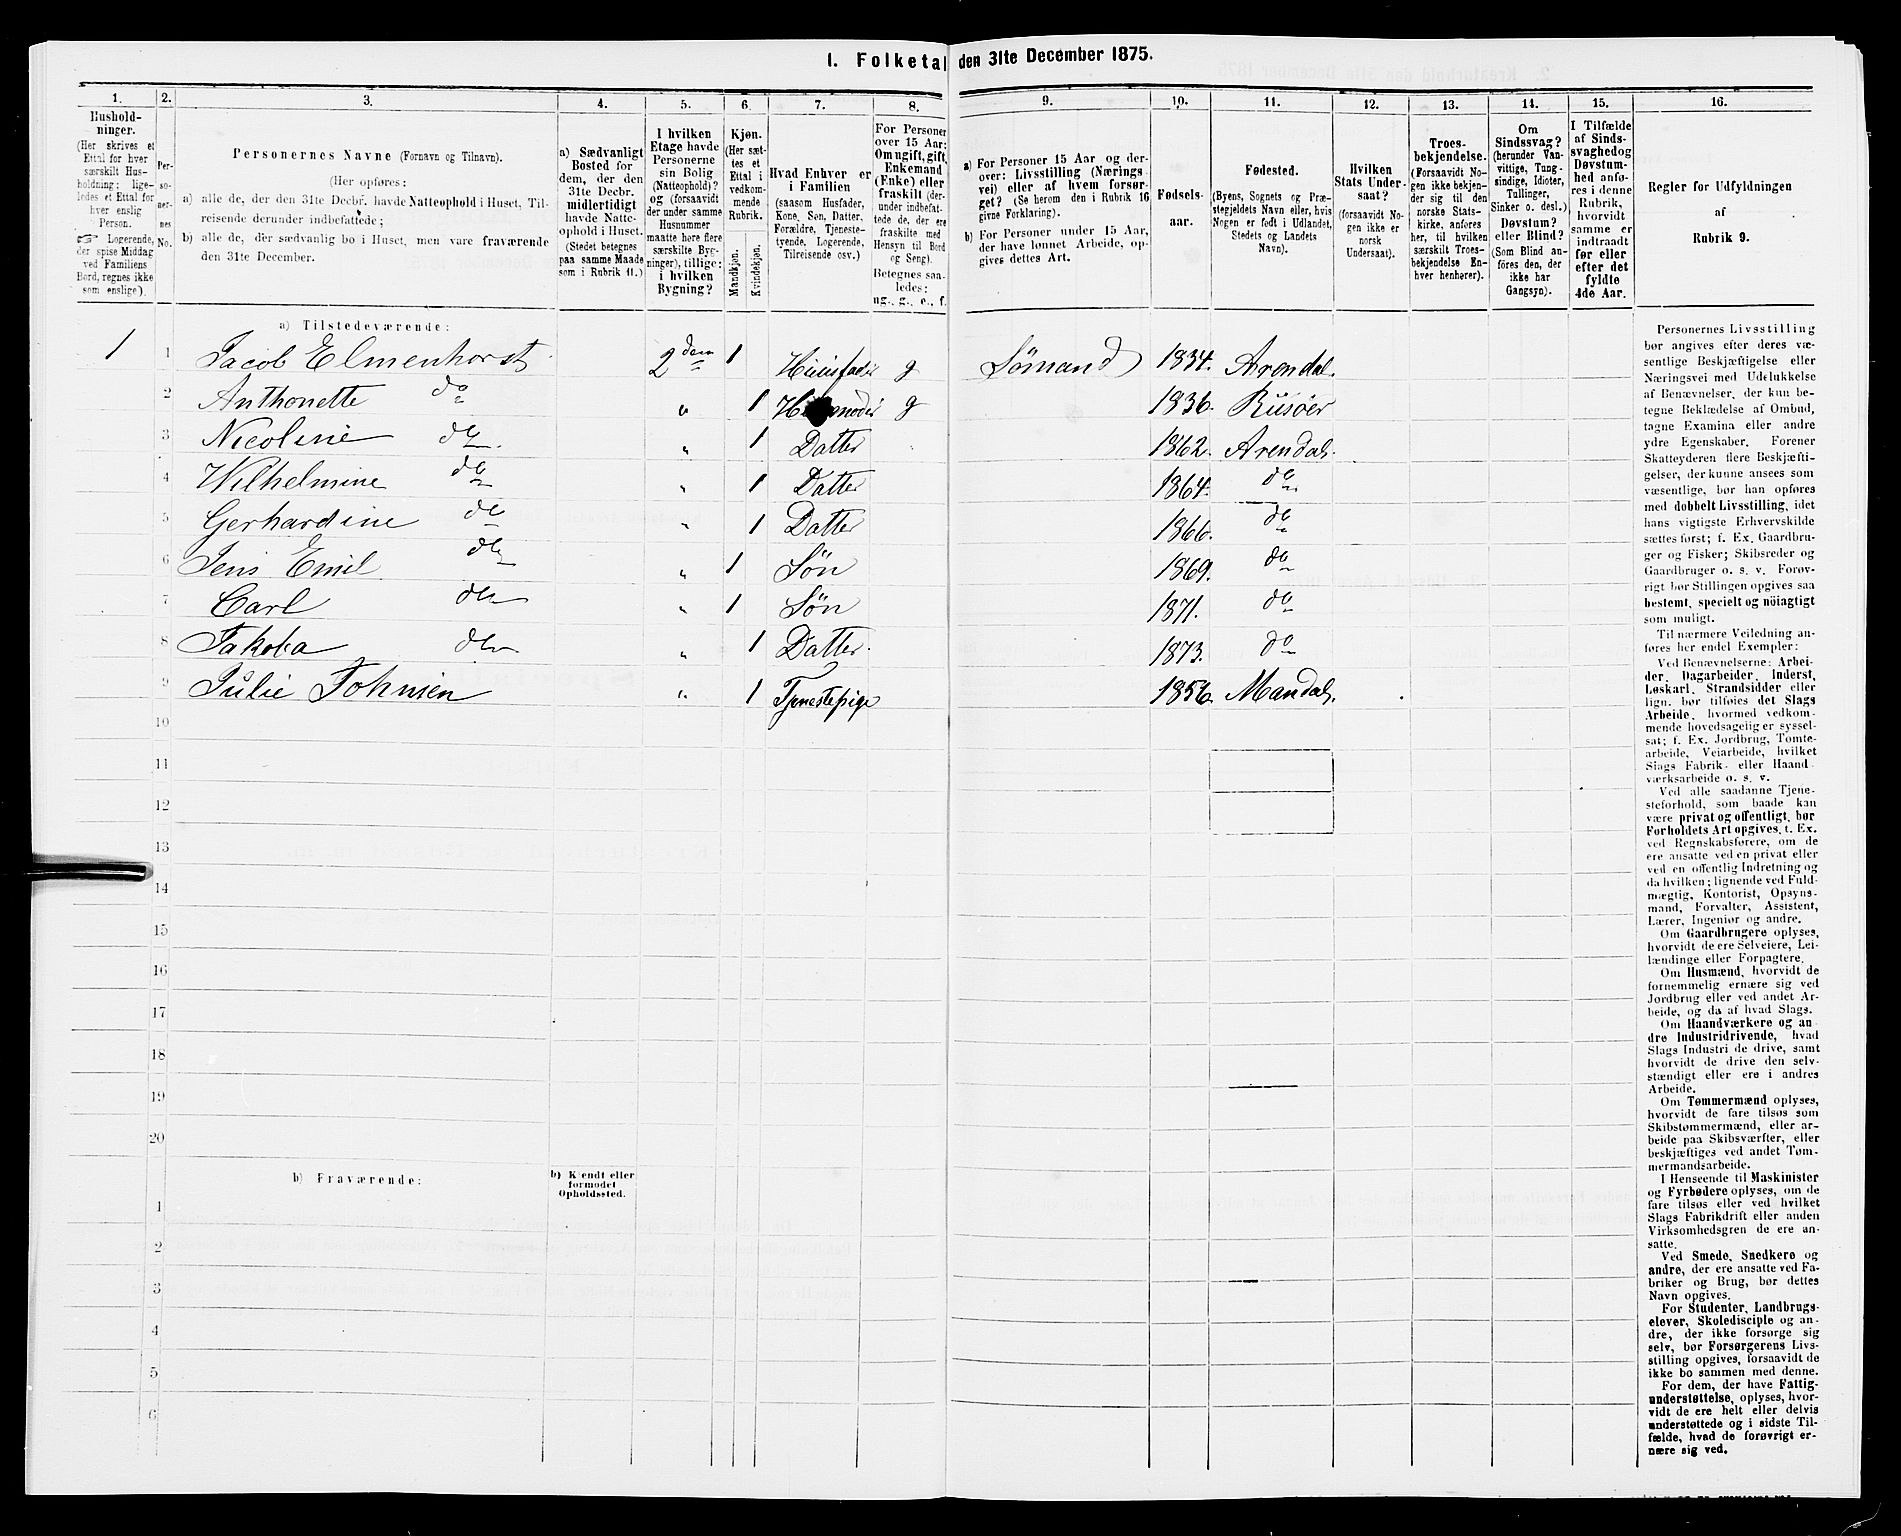 I. Folketal den 31te December 1875.
1. 2. 3. 4. 5. 6. 7. 8. 9. 10. 11. 12. 13. 14. 15. 16.
Hushold-
ninger.
(Her skrives et
Ettal for hver
særskilt Hus-
holdning; lige-
ledes et Ettal for
hver enslig
Person.
☞ Logerende,
der spise Middag
ved Familiens
Bord, regnes ikke
som enslige).
Per-
so-
ner-
nes
No.
Personernes Navne (Fornavn og Tilnavn).
(Her opføres:
a) alle de, der den 31te Decbr. havde Natteophold i Huset, Til-
reisende derunder indbefattede;
b) alle de, der sædvanlig bo i Huset, men vare fraværende
den 31te December.
a) Sædvanligt
Bosted for
dem, der den
31te Decbr.
midlertidigt
havde Natte-
ophold i Huset.
(Stedet betegnes
paa samme Maade
som i Rubrik 11.)
I hvilken
Etage havde
Personerne
sin Bolig
(Natteophold)?
og (forsaavidt
der under samme
Husnummer
maatte here flere
særskilte Byg-
ninger), tillige:
i hvilken
Bygning?
Kjøn.
(Her sæt-
tes et
Ettal i
vedkom-
mende
Rubrik.
Mandkjøn.
Kvindekjøn.
Hvad Enhver er
i Familien
(saasom Husfader,
Kone, Søn, Datter,
Forældre, Tjeneste-
tyende, Logerende,
Tilreisende osv.)
For Personer
over 15 Aar:
Om ugift, gift,
Enkemand
(Enke) eller
fraskilt (der-
under indbefat-
tede de, der ere
fraskilte med
Hensyn til Bord
og Seng).
Betegnes saa-
ledes:
ug., g., e., f.
a) For Personer 15 Aar og der-
over: Livsstilling (Nærings-
vei) eller af hvem forsør-
get? (Se herom den i Rubrik 16
givne Forklaring).
b) For Personer under 15 Aar,
der have lønnet Arbeide, op-
gives dettes Art.
Fødsels-
aar.
Fødested.
(Byens, Sognets og Præ-
stegjeldets Navn eller, hvis
Nogen er født i Udlandet,
Stedets og Landets
Navn).
Hvilken
Stats Under-
saat?
(forsaavidt No-
gen ikke er
norsk
Undersaat).
Troes-
bekjendelse.
(Forsaavidt No-
gen ikke bekjen-
der sig til den
norske Stats-
kirke, anføres
her, til hvilken
særskilt Troes-
bekjendelse En-
hver henhører).
Om
Sindssvag?
(herunder Van-
vittige, Tung-
sindige, Idioter,
Tullinger,
Sinker o. desl.)
Døvstum?
eller Blind?
(Som Blind an-
føres den, der
ikke har
Gangsyn).
I Tilfælde
af Sinds-
svaghed og
Døvstum-
hed anfø-
res i denne
Rubrik,
hvorvidt
samme er
indtraadt
før eller
efter det
fyldte
4de Aar.
Regler for Udfyldningen
af
Rubrik 9.
a) Tilstedeværende:
1 1 Jacob Elmenhorst 2 den 1 Huusfader g Sømand 1834. Arendal.
2 Anthonette do " 1 Husmoder g 1836. Risöer
3 Nicoline do " 1 Datter 1862. Arendal.
4 Wilhelmine do " 1 Datter 1864. do
5 Gerhardine do " 1 Datter 1866. do
6 Jens Emil do " 1 Søn 1869. do
7 Carl do " 1 Søn 1871. do
8 Jakoba do " 1 Datter. 1873. do
9 Julie Johnsen " 1 Tjenestepige 1856. Mandal.
10
11
12
13
14
15
16
17
18
19
20
b) Fraværende:
b) Kjendt eller
formodet
Opholdssted.
1
2
3
4
5
6
Personernes Livsstilling
bør angives efter deres væ-
sentlige Beskjæftigelse eller
Næringsvei med Udelukkelse
af Benævnelser, der kun be-
tegne Beklædelse af Ombud,
tagne Examina eller andre
ydre Egenskaber. Forener
Skatteyderen flere Beskjæfti-
gelser, der kunne ansees som
væsentlige, bør han opføres
med dobbelt Livsstilling, idet
hans vigtigste Erhvervskilde
sættes først; f. Ex. Gaardbru-
ger og Fisker; Skibsreder og
Gaardbruger o. s. v. Forøv-
rigt bør Stillingen opgives saa
bestemt, specielt og nöiagtigt
som muligt.
Til nærmere Veiledning an-
føres her endel Exempler:
Ved Benævnelserne: Arbei-
der, Dagarbeider, Inderst,
Løskarl, Strandsidder eller
lign. bør tilføies det Slags
Arbeide, hvormed vedkom-
mende hovedsagelig er syssel-
sat; f. Ex. Jordbrug, Tomte-
arbeide, Veiarbeide, hvilket
Slags Fabrik- eller Haand-
værksarbeide o. s. v.
Ved alle saadanne Tjene-
steforhold, som baade kan
være privat og offentligt, bør
Forholdets Art opgives, t. Ex.
ved Regnskabsførere, om de
ere ansatte ved en privat eller
ved en offentlig Indretning og
da hvilken; lignende ved Fuld-
mægtig, Kontorist, Opsyns-
mand, Forvalter, Assistent,
Lærer, Ingeniør og andre.
Om Gaardbrugere oplyses,
hvorvidt de ere Selveiere, Lei-
lændinge eller Forpagtere.
Om Husmænd, hvorvidt de
fornemmelig ernære sig ved
Jordbrug eller ved andet Ar-
beide, og da af hvad Slags.
Om Haandværkere og an-
dre Industridrivende, hvad
Slags Industri de drive, samt
hvorvidt de drive den selv-
stændigt eller ere i andres
Arbeide.
Om Tømmermænd oplyses,
hvorvidt de fare tilsøs som
Skibstømmermænd, eller ar-
beide paa Skibsværfter, eller
beskjæftiges ved andet Tøm-
mermandsarbeide.
I Henseende til Maskinister
og Fyrbødere oplyses, om de
fare tilsøs eller ved hvilket
Slags Fabrikdrift eller anden
Virksomhedsgren de ere an-
satte.
Ved Smede, Snedkere og
andre, der ere ansatte ved Fa-
briker og Brug, bør dettes
Navn opgives.
For Studenter, Landbrugs-
elever, Skoledisciple og an-
dre, der ikke forsørge sig
selv, bør Forsørgerens Livs-
stilling opgives, forsaavidt de
ikke bo sammen med denne.
For dem, der have Fattig-
understøttelse, oplyses, hvor-
vidt de ere helt eller delvis
understøttede og i sidste Til-
fælde, hvad de forøvrigt er-
nære sig ved.